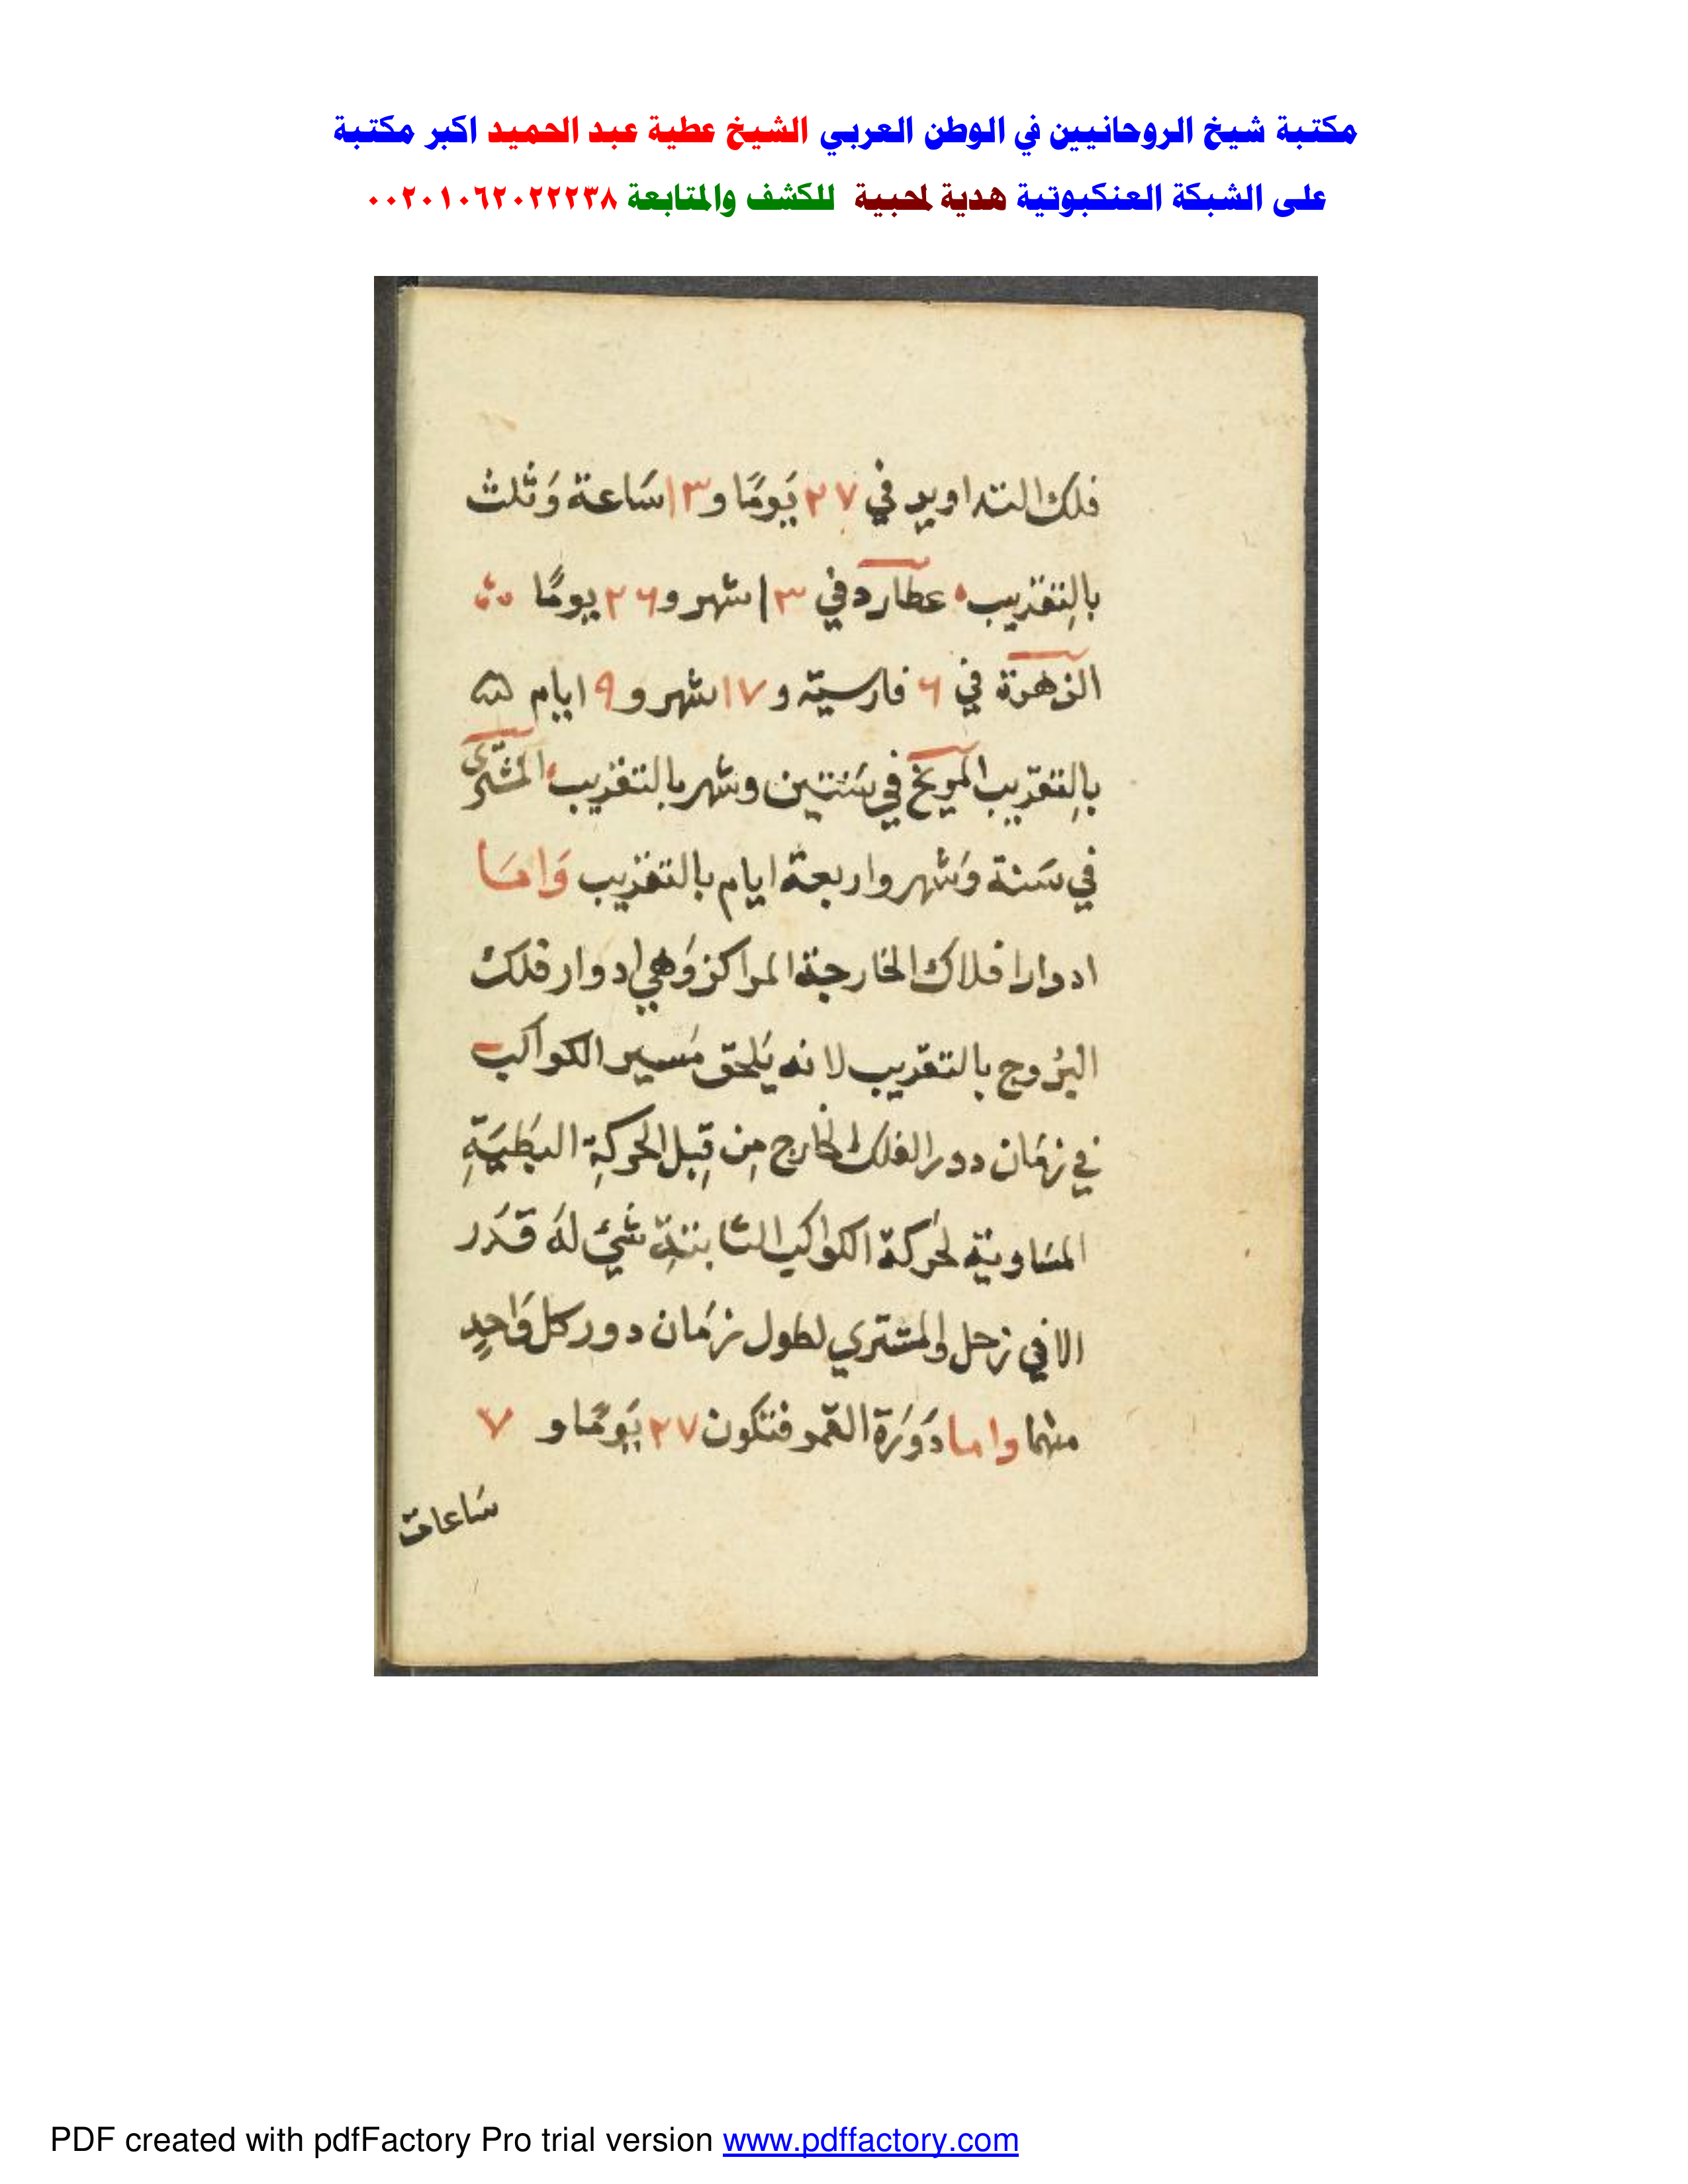 مكتبة شيخ الروحانيين في الوطن العربي الشيخ عطية عبد الحميد اكبر مكتبة
على الشبكة العنكبوتية هدية لمحبية للكشف والمتابعة ٠٠٢٠١٠٦٢٠٢٢٢٣٨
فلك التداوير في ٢٧ يَومًا و١٣ سَاعة وَثلث
بالتقريب عطارد في ١٣ شهر و٢٦ يومًا
الزهرة في ٦ فارسية و١٧ شهر و٩ ايام
بالتقريب المريخ في سَنتين وشهر بالتقريب المشتري
في سَنة وَشهر واربعة ايام بالتقريب وَامَا
ادوار افلاك الخارجة المراكز وَهي ادوار فلك
البُروج بالتقريب لانه يَلحق مَسير الكواكب
في زمَان دور الفلك الخارج مِن قِبل الحركةِ البَطيَةِ
المسَاوية لحَركة الكواكب الثابتةِ شيَ لهُ قَدر
الا في زحل والمشتري لطول زمَان دور كل وَاحدٍ
منهما واما دَورَة القمر فتكون ٢٧ يَومًا و ٧
سَاعات
PDF created with pdfFactory Pro trial version www.pdffactory.com